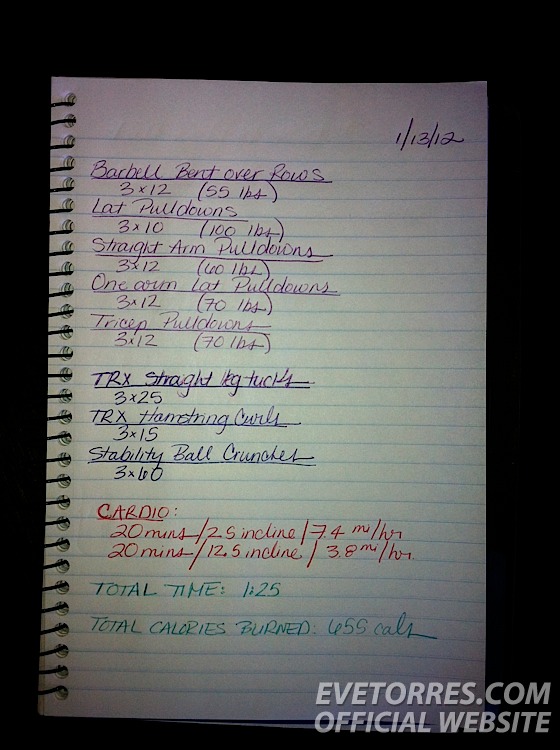 1/13/12
Barbell Bent over Rows
3x12 (55 lbs)
Lat Pulldowns
3x10 (100 lbs)
Straight Arm Pulldowns
3x12 (60 lbs)
One arm Lat Pulldowns
3x12 (70 lbs)
Tricep Pulldowns
3x12 (70 lbs)
TRX Straight leg tucks
3x25
TRX Hamstring Curls
3x15
Stability Ball Crunches
3x60
CARDIO:
20 mins / 2.5 incline / 7.4 mi/hr
20 mins / 12.5 incline / 3.8 mi/hr
TOTAL TIME: 1:25
TOTAL CALORIES BURNED: 655 cals
EVETORRES.COM
OFFICIAL WEBSITE